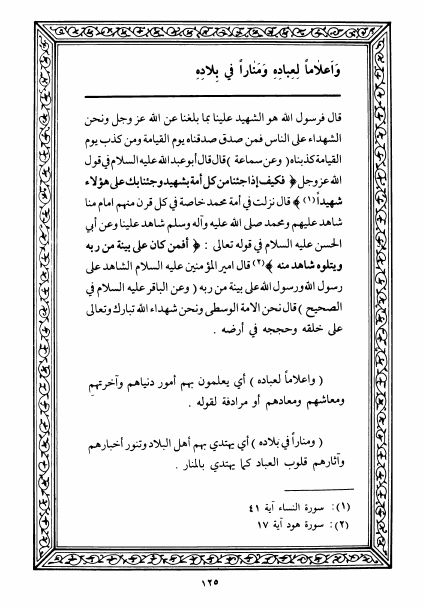 وَاَعلاٰماً لِعِبادِهِ وَمَناراً في بِلادِهِ
قال فرسول الله هو الشهيد علينا بما بلغنا عن الله عز وجل ونحن
الشهداء على الناس فمن صدق صدقناه يوم القيامة ومن كذب يوم
القيامة كذبناه ( وعن سماعة ) قال قال أبو عبد الله عليه السلام في قول
الله عز وجل ﴿ فكيف إذا جئنا من كل أمة بشهيد وجئنا بك على هؤلاء
شهيداً (١) ﴾ قال نزلت في أمة محمد خاصة في كل قرن منهم امام منا
شاهد عليهم ومحمد صلى الله عليه وآله وسلم شاهد علينا وعن أبي
الحسن عليه السلام في قوله تعالى : ﴿ أفمن كان على بينة من ربه
ويتلوه شاهد منه ﴾ (٢) قال امير المؤمنين عليه السلام الشاهد على
رسول الله ورسول الله على بينة من ربه ( وعن الباقر عليه السلام في
الصحيح ) قال نحن الامة الوسطى ونحن شهداء الله تبارك وتعالى
على خلقه وحججه في أرضه .
( واعلاماً لعباده ) أي يعلمون بهم أمور دنياهم وآخرتهم
ومعاشهم ومعادهم أو مرادفة لقوله .
( ومناراً في بلاده ) أي يهتدي بهم أهل البلاد وتنور أخبارهم
وآثارهم قلوب العباد كما يهتدي بالمنار .
(١) : سورة النساء آية ٤١
(٢) : سورة هود آية ١٧
١٢٥